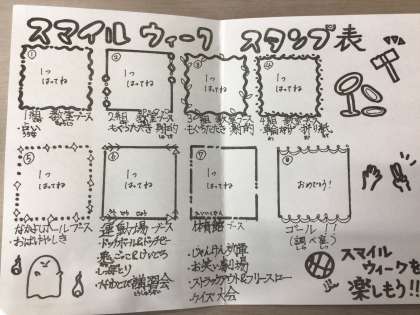 スマイル ウィーク スタンプ 表
① 1つ はってね
② 1つ はってね
③ 1つ はってね
④ 1つ はってね
1組 教室ブース
2組 教室ブース
・もぐらたたき 射的
3組 教室ブース
・もぐらたたき 射的
4組 教室ブース
・輪なげ 折り紙
⑤ 1つ はってね
⑥ 1つ はってね
⑦ 1つ はってね
⑧ おめでとう!
なかよしホールブース
・おばけやしき
うんどうじょう
運動場ブース
・ドッチボール&ドッヂビー
・鬼ごっこ&けいどろ
・しっぽとり
・なわとび講習会
たいいくかん
体育館ブース
・じゃんけん列車
・お笑い劇場
・ストラックアウト&フリースロー
・クイズ大会
ゴール!!
スマイル
ウィークを
楽しもう!!